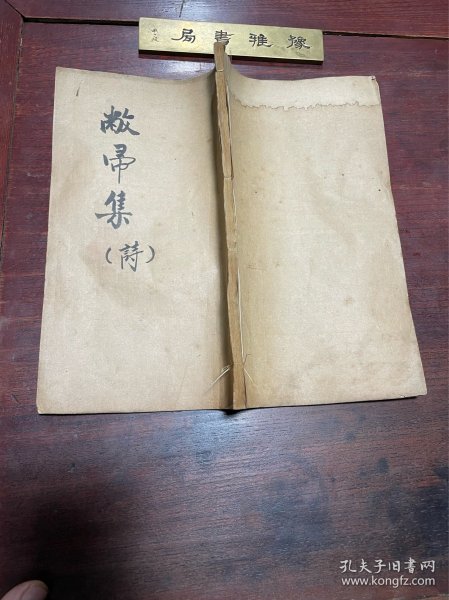 豫雅書局
敝帚集
（詩）
孔夫子旧书网
www.kongfz.com